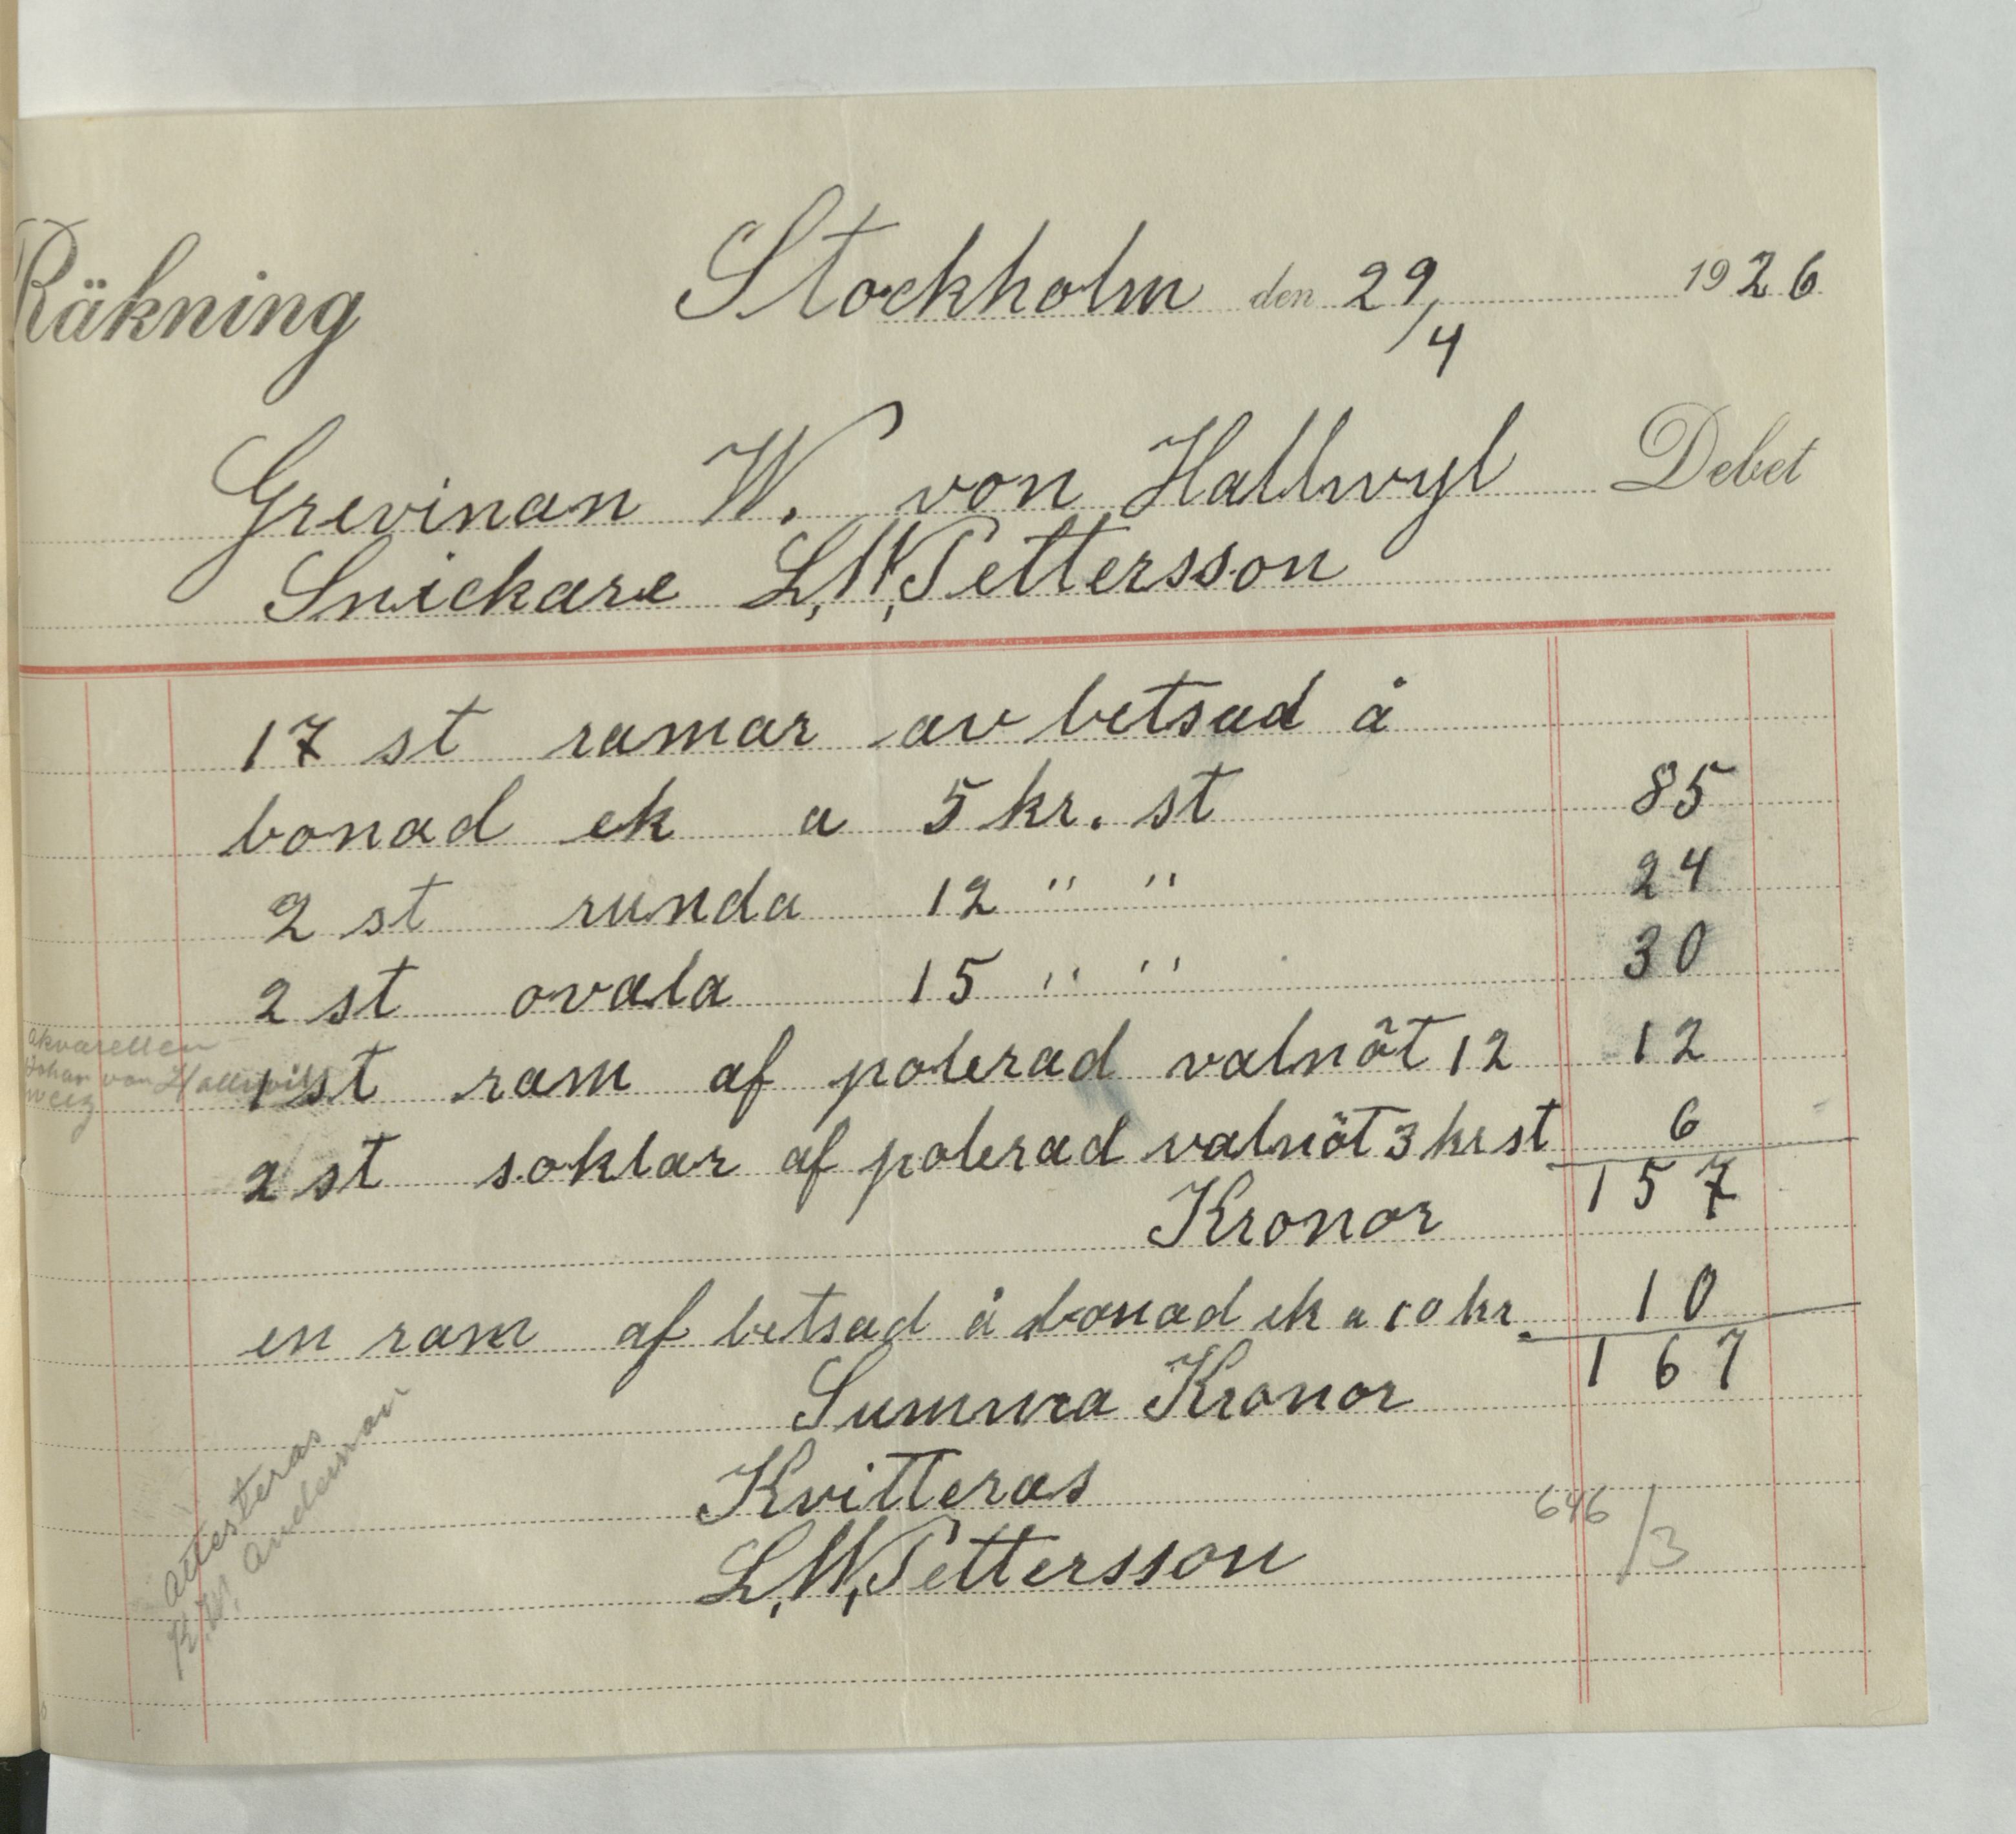 Räkning
Stockholm den 29/4 1926
Grevinan W. von Hallwyl Debet
Snickare L,W,Pettersson
17 st ramar av betsad å
bonad ek a 5 kr. st 85
2 st runda 12 " " 24
2 st ovala 15 " " 30
akvarellen
Johan von Hallwil
1 st ram af polerad valnöt 12 12
2 st soklar af polerad valnöt 3 kr st 6
Kronor 157
en ram af betsad å bonad ek a 10 kr. 10
Summa Kronor 167
Kvitteras
L,W,Pettersson
646/3
Attesteras
K.W. Andersson